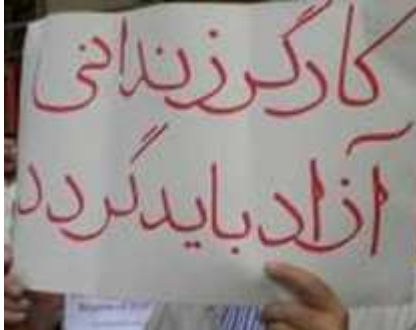 کارگر زندانی
آزاد باید گردد